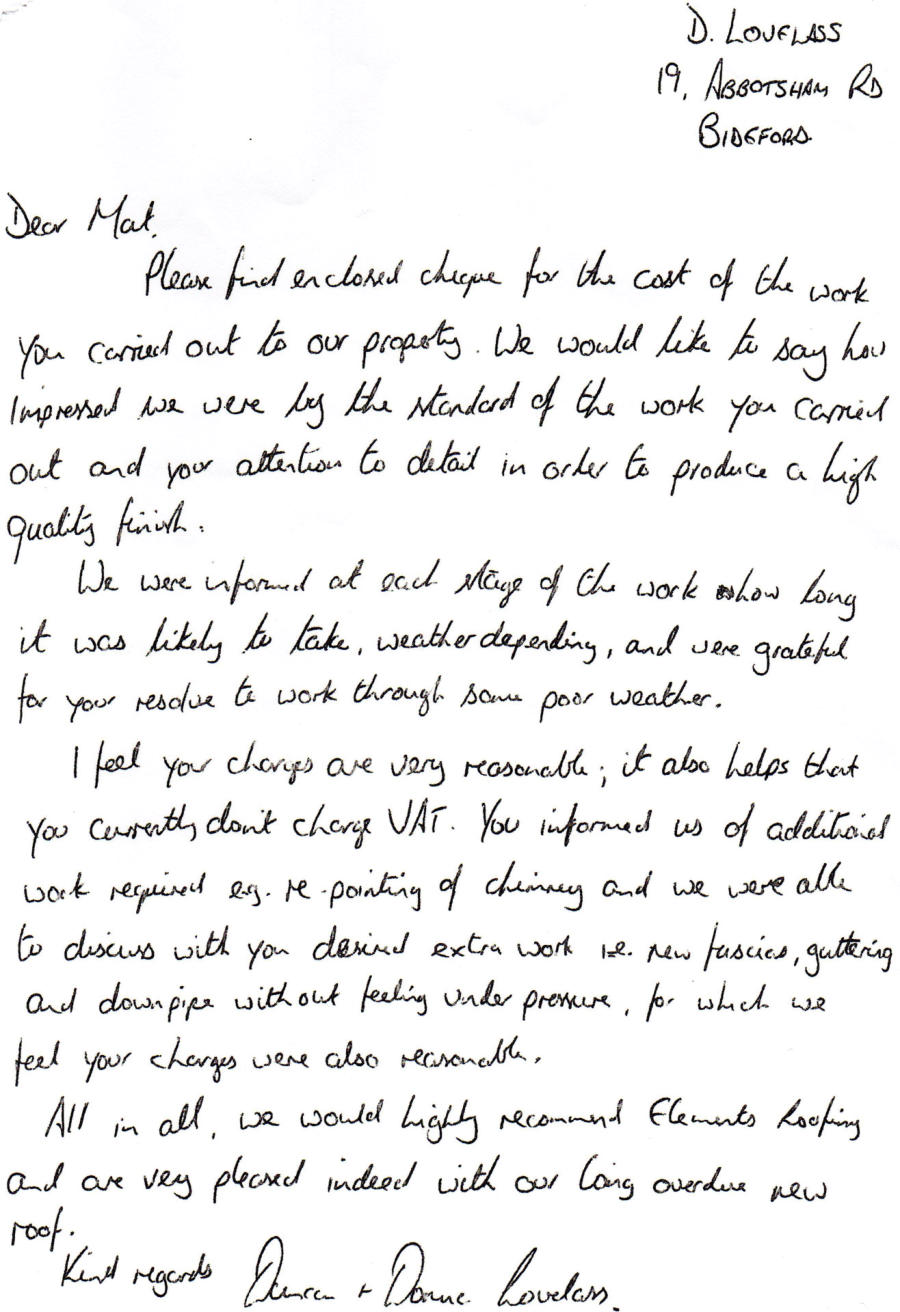 D. LOVELASS
19, ABBOTSHAM RD
BIDEFORD.
Dear Mat,
Please find enclosed cheque for the cost of the work
you carried out to our property. We would like to say how
impressed we were by the standard of the work you carried
out and your attention to detail in order to produce a high
quality finish.
We were informed at each stage of the work how long
it was likely to take, weather depending, and were grateful
for your resolve to work through some poor weather.
I feel your charges are very reasonable; it also helps that
you currently don't charge VAT. You informed us of additional
work required e.g. re-pointing of chimney and we were able
to discuss with you desired extra work i.e. new fascias, guttering
and downpipe without feeling under pressure, for which we
feel your charges were also reasonable.
All in all, we would highly recommend Elements Roofing
and are very pleased indeed with our long overdue new
roof.
Kind regards Duncan + Dawne Lovelass.